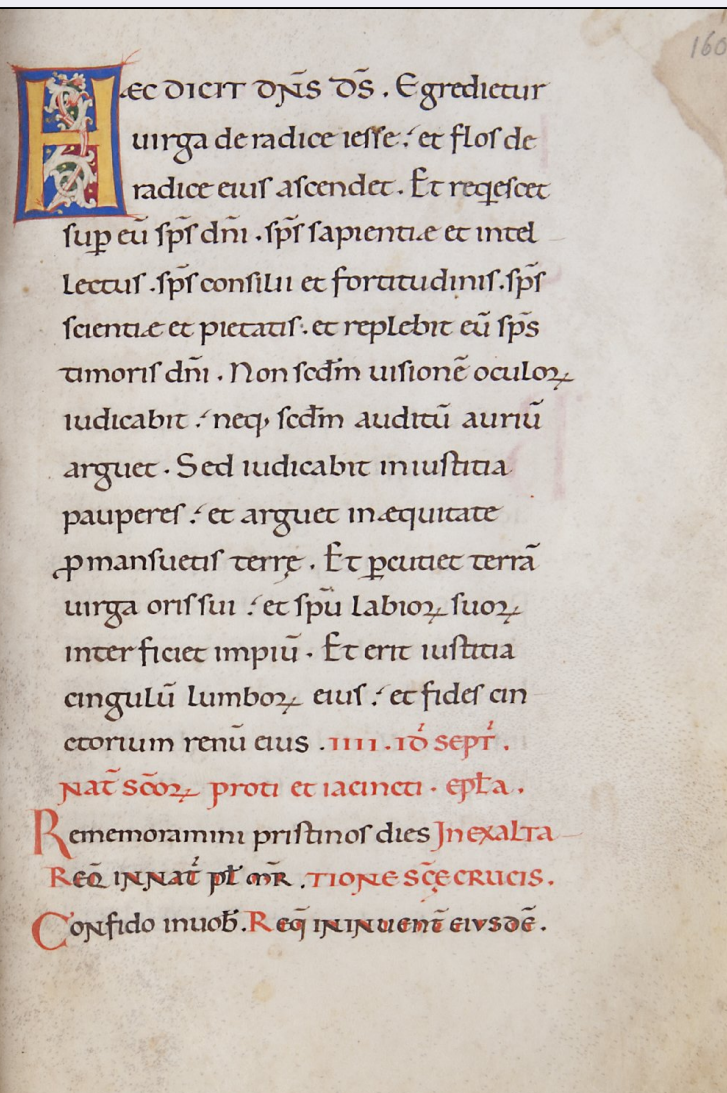 160
HÆC DICIT DN̄S DS̄. Egredietur
uirga de radice iesse: et flos de
radice eius ascendet. Et reqꝫescet
suꝑ eū sp̄s dn̄i. sp̄s sapientiæ et intel
lectus. sp̄s consilii et fortitudinis. sp̄s
scientiæ et pietatis. et replebit eū sp̄s
timoris dn̄i. Non scdm̄ uisionē oculoꝝ
iudicabit: neqꝫ scdm̄ auditū auriū
arguet. Sed iudicabit in iustitia
pauperes: et arguet in æquitate
ꝓ mansuetis terrę. Et ꝑcutiet terrā
uirga oris sui: et sp̄u labioꝝ suoꝝ
interficiet impiū. Et erit iustitia
cingulū lumboꝝ eius: et fides cin
ctorium renū eius. IIII. ID SEPT̄.
NAT̄ SC̄OꝜ proti et iacincti. epła.
Rememoramini pristinos dies In exalta
REQ̄ IN NAT̄ pł MR̄. TIONE SC̄Ę CRUCIS.
Confido in uob̄. REQ̄ IN INUENT̄ EIVSDĒ.